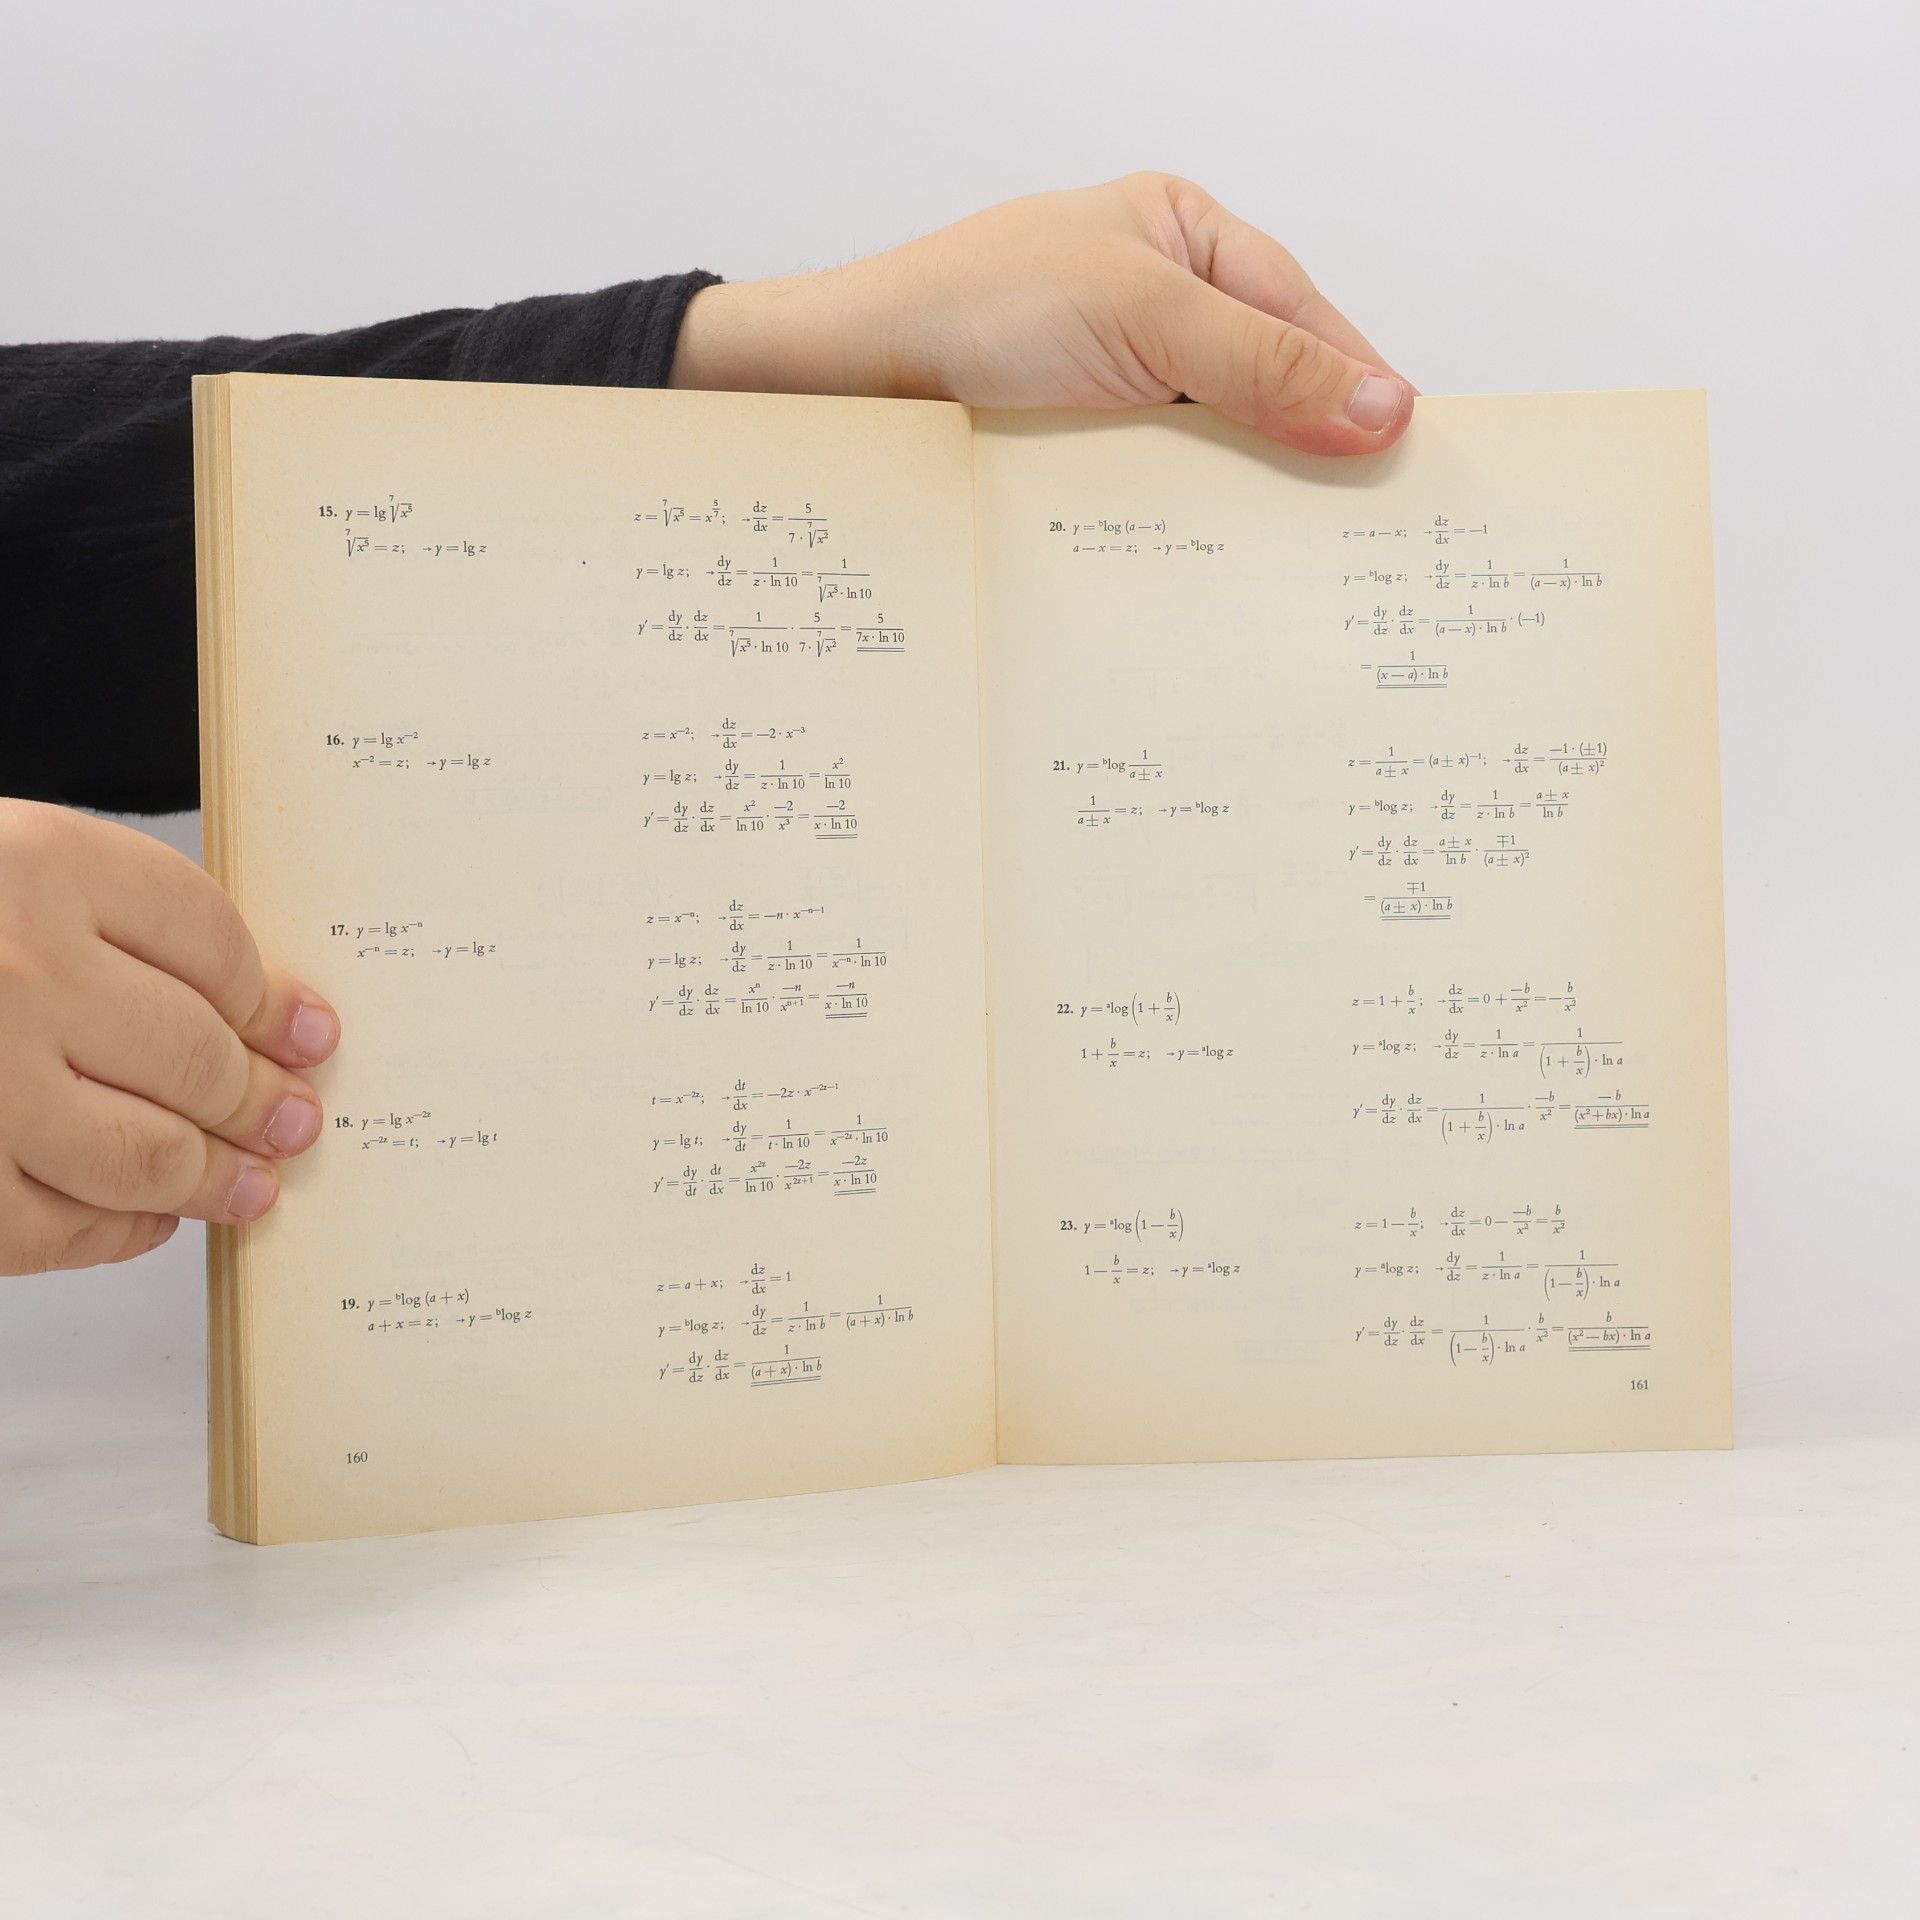 15. y = lg ⁷√x⁵
⁷√x⁵ = z; → y = lg z
z = ⁷√x⁵ = x^(5/7); → dz/dx = 5/(7 · ⁷√x²)
y = lg z; → dy/dz = 1/(z · ln 10) = 1/(⁷√x⁵ · ln 10)
y′ = dy/dz · dz/dx = 1/(⁷√x⁵ · ln 10) · 5/(7 · ⁷√x²) = 5/(7x · ln 10)
16. y = lg x⁻²
x⁻² = z; → y = lg z
z = x⁻²; → dz/dx = −2 · x⁻³
y = lg z; → dy/dz = 1/(z · ln 10) = x²/ln 10
y′ = dy/dz · dz/dx = x²/ln 10 · −2/x³ = −2/(x · ln 10)
17. y = lg x⁻ⁿ
x⁻ⁿ = z; → y = lg z
z = x⁻ⁿ; → dz/dx = −n · x⁻ⁿ⁻¹
y = lg z; → dy/dz = 1/(z · ln 10) = 1/(x⁻ⁿ · ln 10)
y′ = dy/dz · dz/dx = xⁿ/ln 10 · −n/xⁿ⁺¹ = −n/(x · ln 10)
18. y = lg x^(−2z)
x^(−2z) = t; → y = lg t
t = x^(−2z); → dt/dx = −2z · x^(−2z−1)
y = lg t; → dy/dt = 1/(t · ln 10) = 1/(x^(−2z) · ln 10)
y′ = dy/dt · dt/dx = x^(2z)/ln 10 · −2z/x^(2z+1) = −2z/(x · ln 10)
19. y = ᵇlog (a + x)
a + x = z; → y = ᵇlog z
z = a + x; → dz/dx = 1
y = ᵇlog z; → dy/dz = 1/(z · ln b) = 1/((a + x) · ln b)
y′ = dy/dz · dz/dx = 1/((a + x) · ln b)
160
20. y = ᵇlog (a − x)
a − x = z; → y = ᵇlog z
z = a − x; → dz/dx = −1
y = ᵇlog z; → dy/dz = 1/(z · ln b) = 1/((a − x) · ln b)
y′ = dy/dz · dz/dx = 1/((a − x) · ln b) · (−1)
= 1/((x − a) · ln b)
21. y = ᵇlog 1/(a ± x)
1/(a ± x) = z; → y = ᵇlog z
z = 1/(a ± x) = (a ± x)⁻¹; → dz/dx = −1 · (±1)/(a ± x)²
y = ᵇlog z; → dy/dz = 1/(z · ln b) = (a ± x)/ln b
y′ = dy/dz · dz/dx = (a ± x)/ln b · ∓1/(a ± x)²
= ∓1/((a ± x) · ln b)
22. y = ᵃlog (1 + b/x)
1 + b/x = z; → y = ᵃlog z
z = 1 + b/x; → dz/dx = 0 + −b/x² = − b/x²
y = ᵃlog z; → dy/dz = 1/(z · ln a) = 1/((1 + b/x) · ln a)
y′ = dy/dz · dz/dx = 1/((1 + b/x) · ln a) · −b/x² = −b/((x² + bx) · ln a)
23. y = ᵃlog (1 − b/x)
1 − b/x = z; → y = ᵃlog z
z = 1 − b/x; → dz/dx = 0 − −b/x² = b/x²
y = ᵃlog z; → dy/dz = 1/(z · ln a) = 1/((1 − b/x) · ln a)
y′ = dy/dz · dz/dx = 1/((1 − b/x) · ln a) · b/x² = b/((x² − bx) · ln a)
161